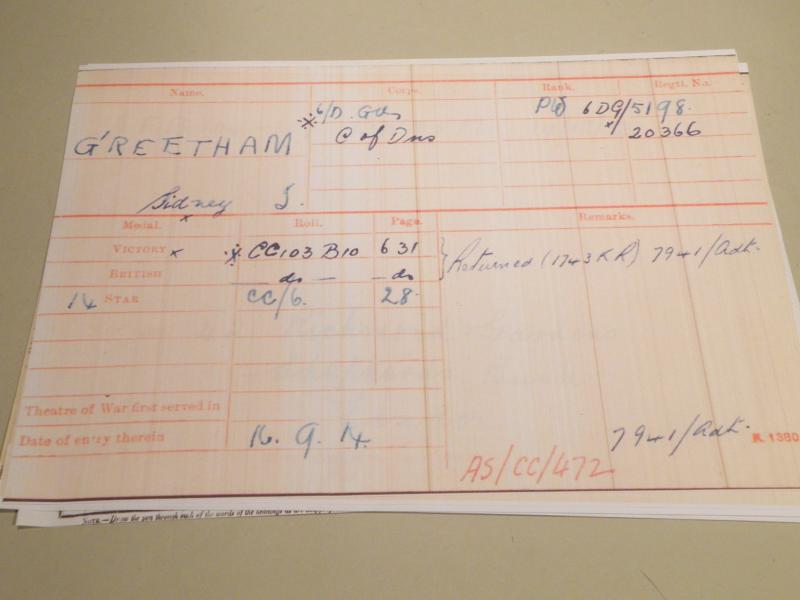 Name. Corps. Rank. Regtl. No.
6/D. Gds Pte 6DG/5198.
GREETHAM C of Dns 20366
Sidney J.
Medal. Roll. Page. Remarks.
VICTORY x CC103 B10 631 Returned (1743 KR) 7941/Adt.
BRITISH do — do
14 STAR CC/6. 28.
Theatre of War first served in
Date of entry therein 16. 9. 14. 7941/Adt. K. 1380
AS/CC/472
NOTE.—Draw the pen through each of the words of the